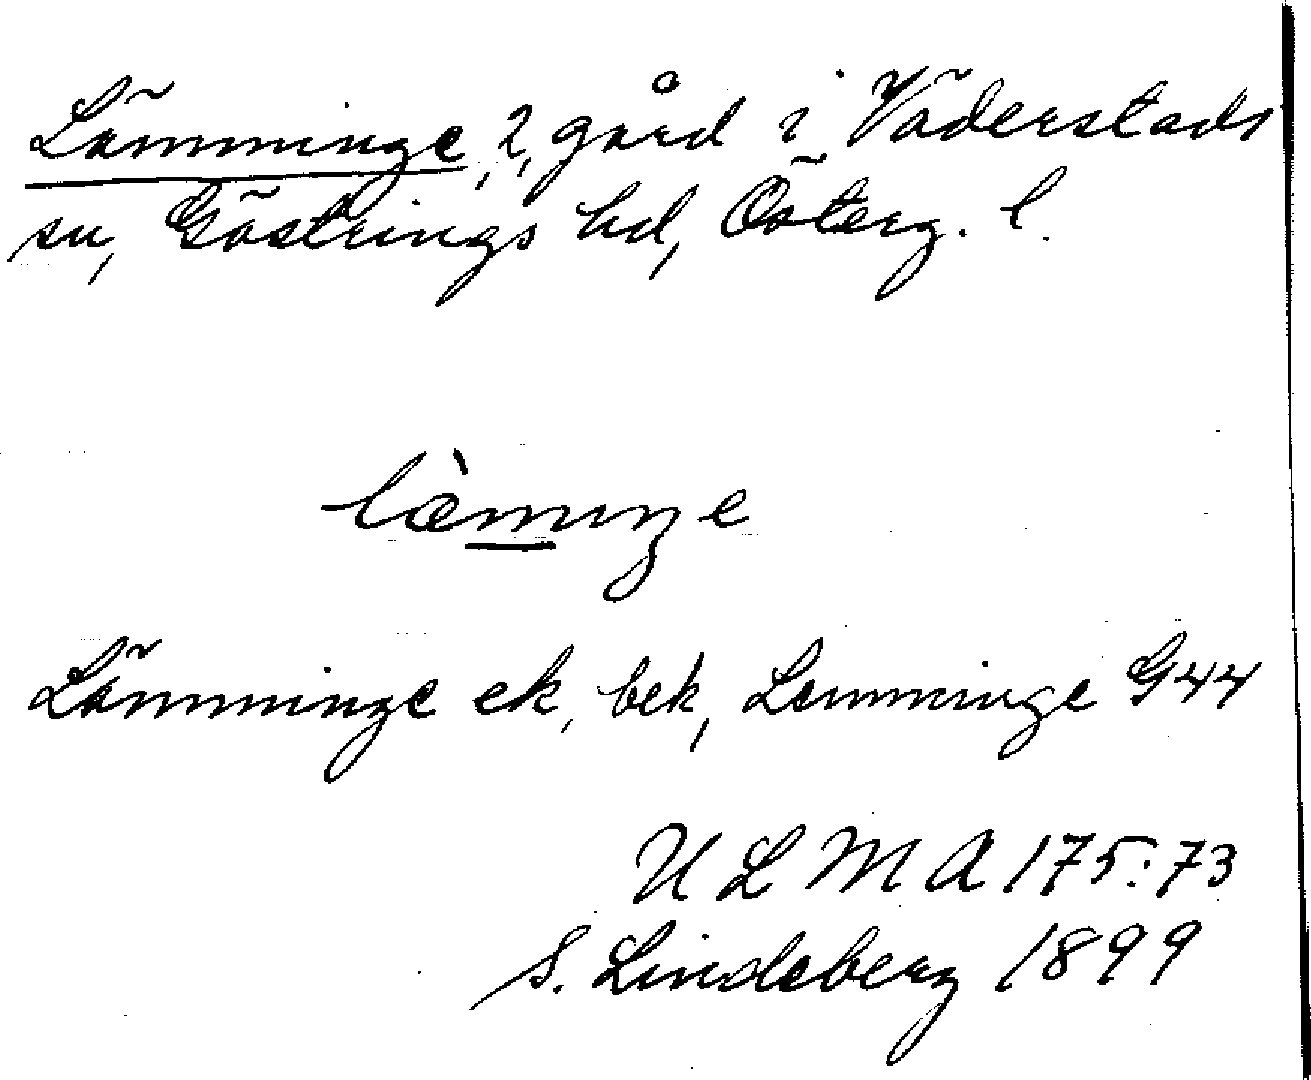 Lämminge, 2, gård i Väderstads
sn, Göstrings hd, Österg. l.
læ̀mıŋe
Lämminge ek, bek, Lemminge G44
ULMA 175:73
S. Lindeberg 1899